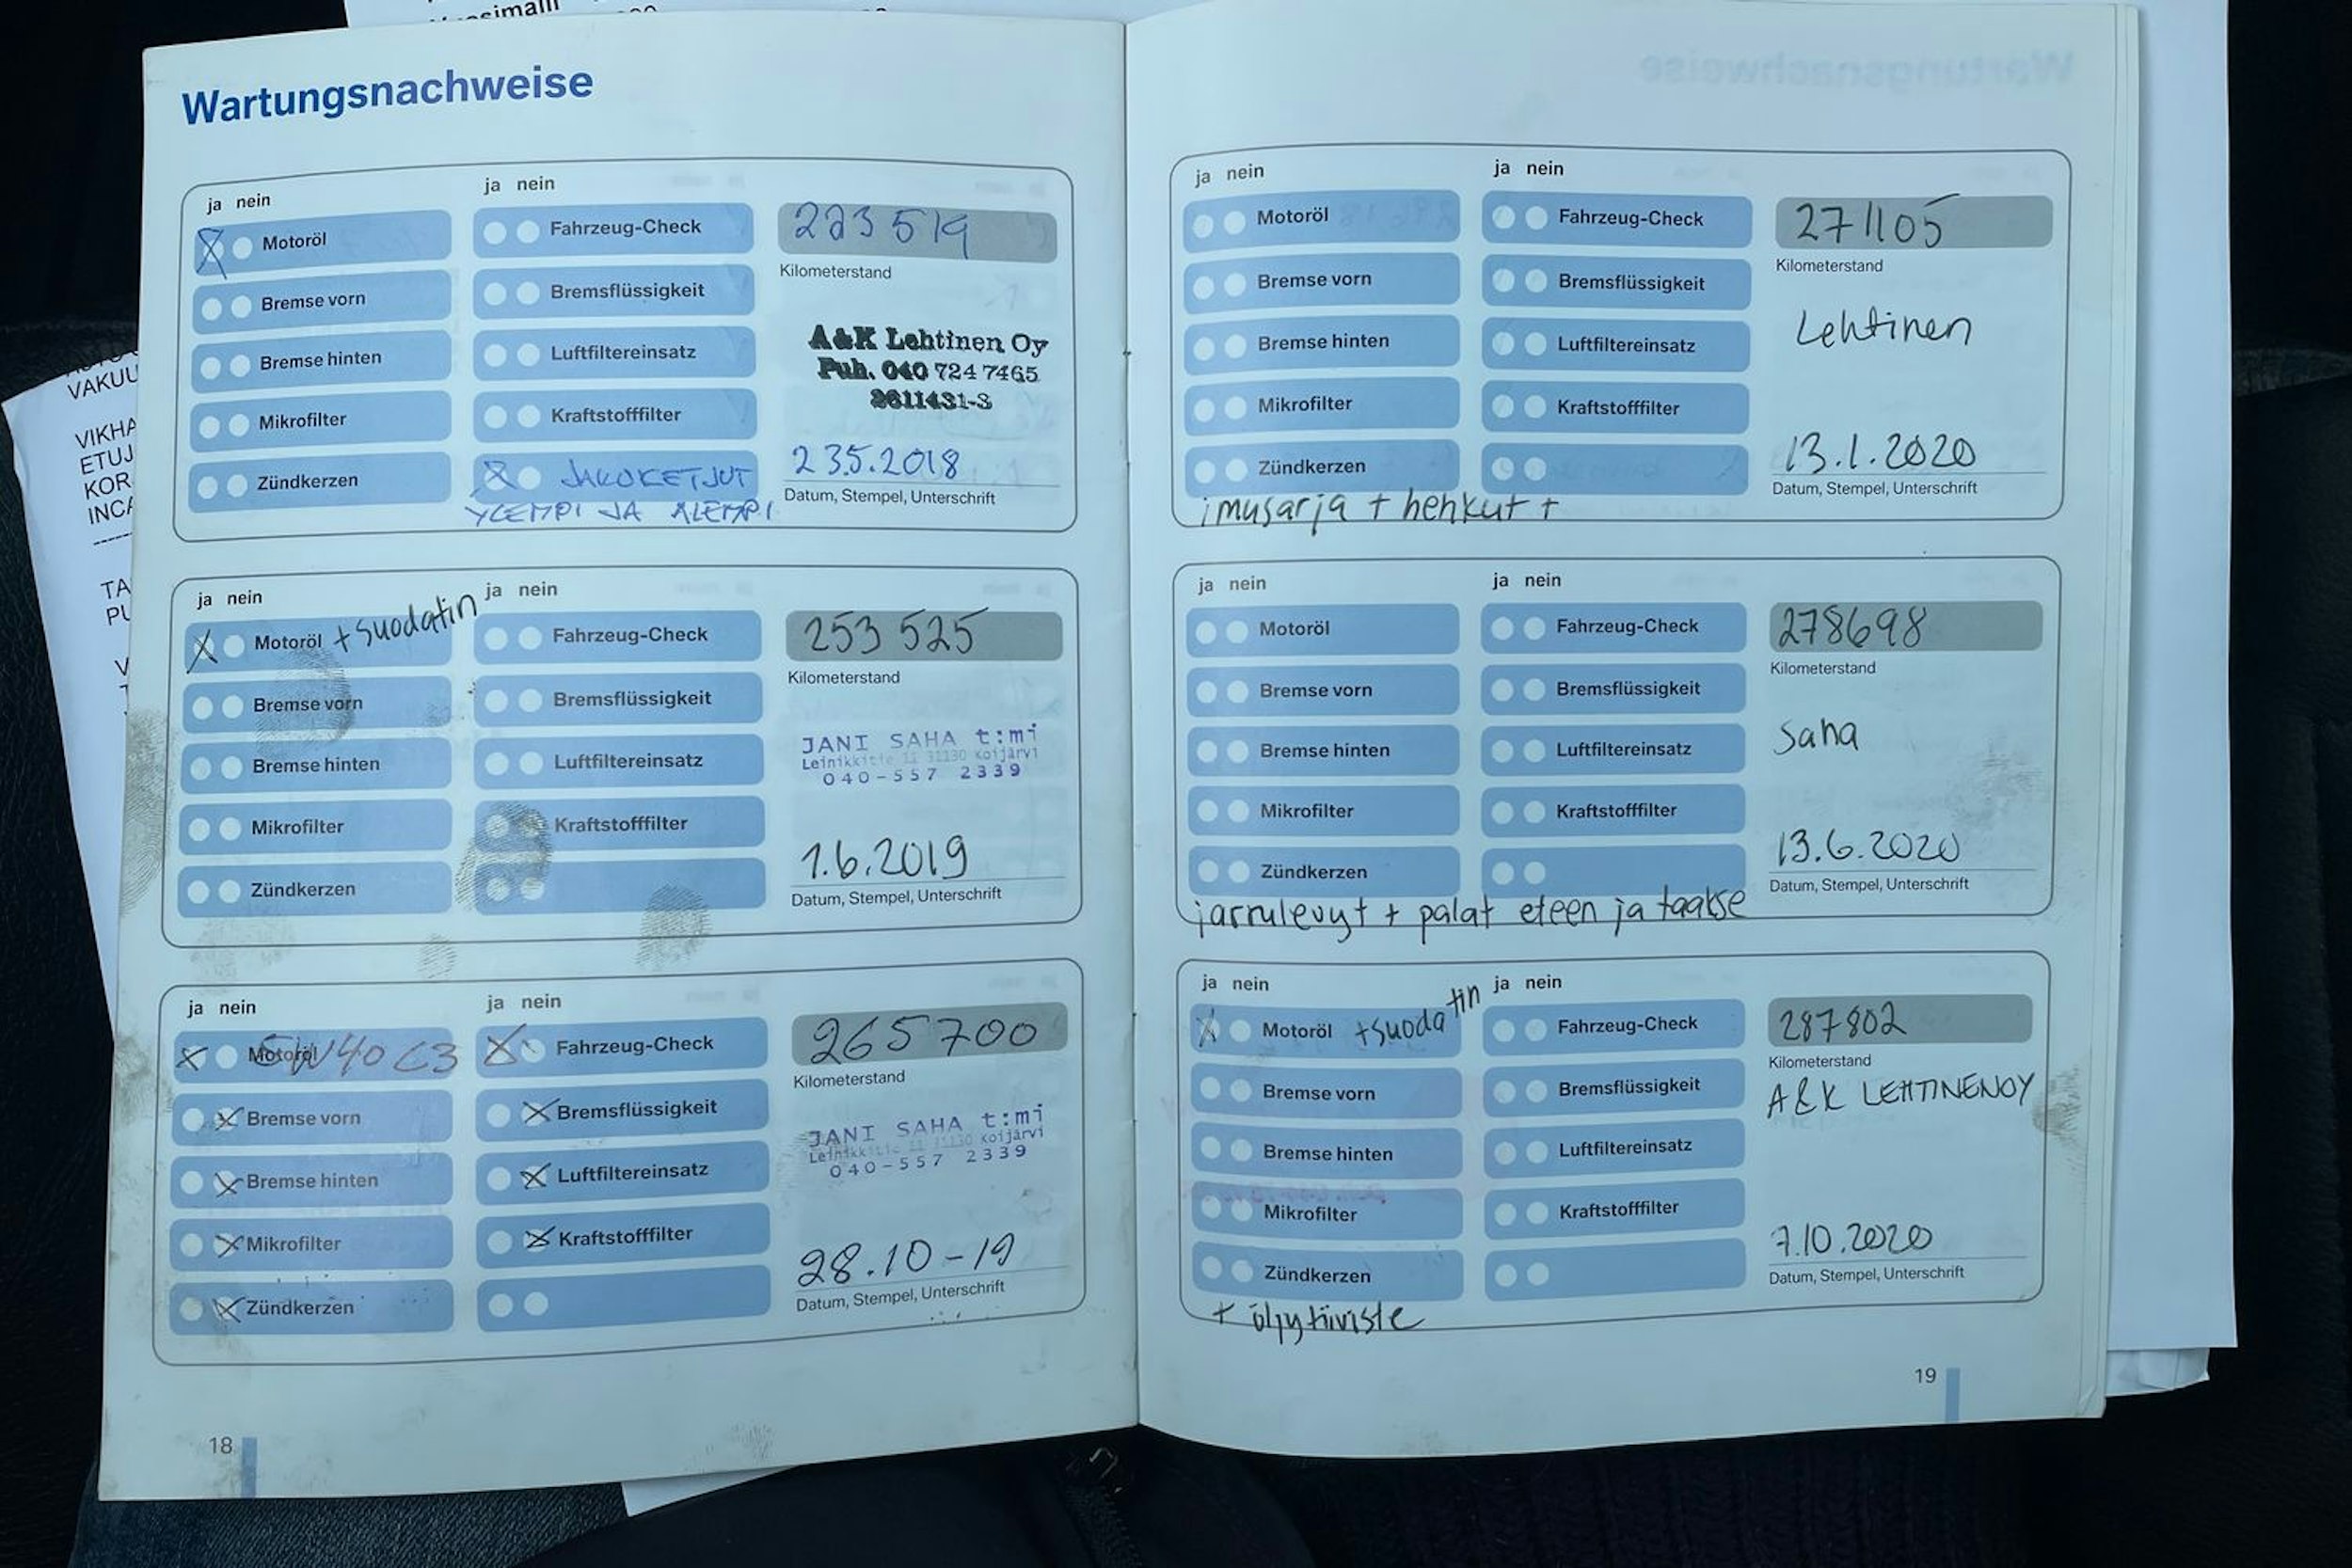 Wartungsnachweise
ja nein
ja nein
Motoröl
Fahrzeug-Check
223 519
Bremse vorn
Bremsflüssigkeit
Kilometerstand
Bremse hinten
Luftfiltereinsatz
A&K Lehtinen Oy
Puh. 040 724 7465
2611431-3
Mikrofilter
Kraftstofffilter
Zündkerzen
JAKOKETJUT
YLEMPI JA ALEMPI
23.5.2018
Datum, Stempel, Unterschrift
ja nein
ja nein
Motoröl + suodatin
Fahrzeug-Check
253 525
Bremse vorn
Bremsflüssigkeit
Kilometerstand
Bremse hinten
Luftfiltereinsatz
JANI SAHA t:mi
Leinikkitie 11 31130 Koijärvi
040-557 2339
Mikrofilter
Kraftstofffilter
Zündkerzen
1.6.2019
Datum, Stempel, Unterschrift
ja nein
ja nein
Motoröl 5W40 C3
Fahrzeug-Check
265 700
Bremse vorn
Bremsflüssigkeit
Kilometerstand
Bremse hinten
Luftfiltereinsatz
JANI SAHA t:mi
Leinikkitie 11 31130 Koijärvi
040-557 2339
Mikrofilter
Kraftstofffilter
Zündkerzen
28.10-19
Datum, Stempel, Unterschrift
18
ja nein
ja nein
Motoröl
Fahrzeug-Check
271105
Bremse vorn
Bremsflüssigkeit
Kilometerstand
Bremse hinten
Luftfiltereinsatz
Lehtinen
Mikrofilter
Kraftstofffilter
Zündkerzen
13.1.2020
Datum, Stempel, Unterschrift
imusarja + hehkut +
ja nein
ja nein
Motoröl
Fahrzeug-Check
278698
Bremse vorn
Bremsflüssigkeit
Kilometerstand
Bremse hinten
Luftfiltereinsatz
Saha
Mikrofilter
Kraftstofffilter
Zündkerzen
13.6.2020
Datum, Stempel, Unterschrift
jarrulevyt + palat eteen ja taakse
ja nein
ja nein
Motoröl +suodatin
Fahrzeug-Check
287802
Bremse vorn
Bremsflüssigkeit
Kilometerstand
Bremse hinten
Luftfiltereinsatz
A&K LEHTINEN OY
Mikrofilter
Kraftstofffilter
Zündkerzen
7.10.2020
Datum, Stempel, Unterschrift
+ öljytiiviste
19
VIKHA
ETUJ
KOR
INCA
TA
PU